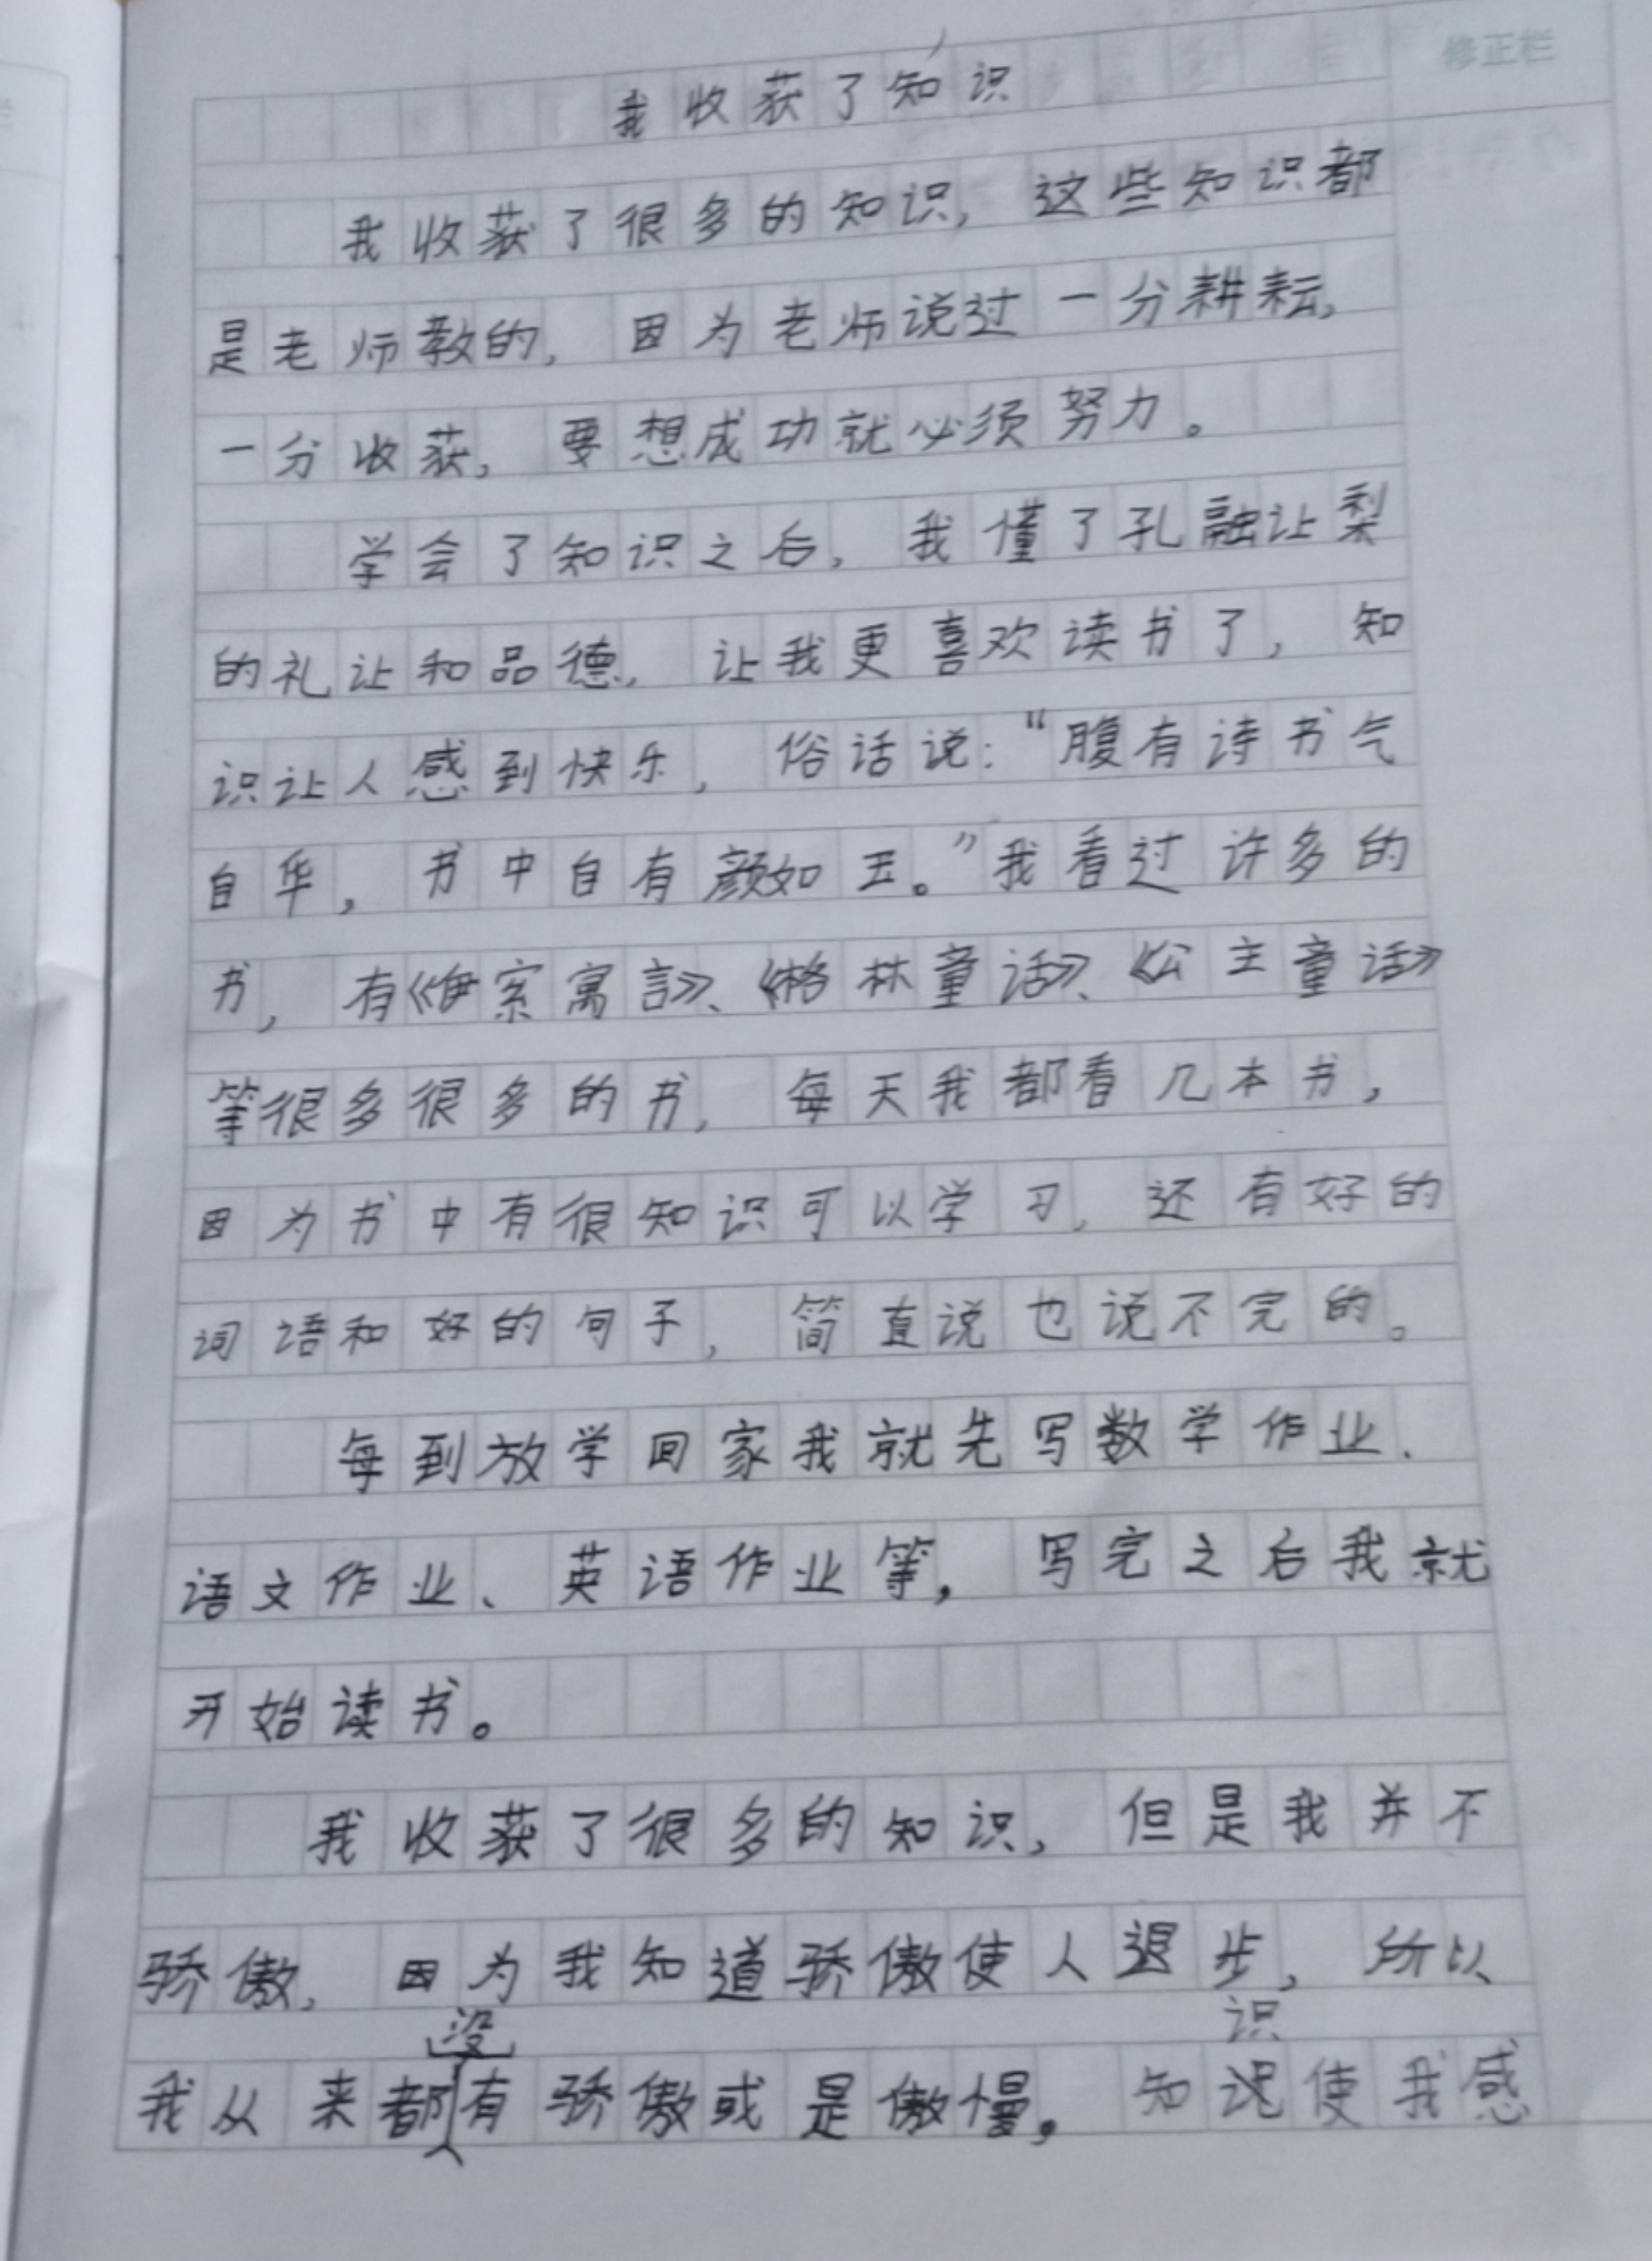 修正栏
我收获了知识
我收获了很多的知识，这些知识都
是老师教的，因为老师说过一分耕耘，
一分收获，要想成功就必须努力。
学会了知识之后，我懂了孔融让梨
的礼让和品德，让我更喜欢读书了，知
识让人感到快乐，俗话说：“腹有诗书气
自华，书中自有颜如玉。”我看过许多的
书，有《伊索寓言》、《格林童话》、《公主童话》
等很多很多的书，每天我都看几本书，
因为书中有很知识可以学习，还有好的
词语和好的句子，简直说也说不完的。
每到放学回家我就先写数学作业、
语文作业、英语作业等，写完之后我就
开始读书。
我收获了很多的知识，但是我并不
骄傲，因为我知道骄傲使人退步，所以
我从来都没有骄傲或是傲慢。知识使我感